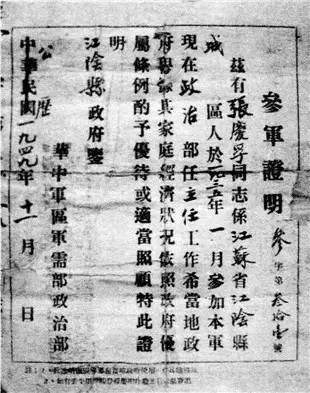 參軍證明
參字第叁拾壹號
茲有張慶孚同志係江蘇省江陰縣
城區人於一九二五年一月參加本軍
現在政治部任主任工作希當地政
府學最其家庭經濟狀況依照政府優
屬條例酌予優待或適當照顧特此證
明
江陰縣政府鑒
華中軍區軍需部政治部
公歷
中華民國一九四九年十一月 日
註：1、
2、